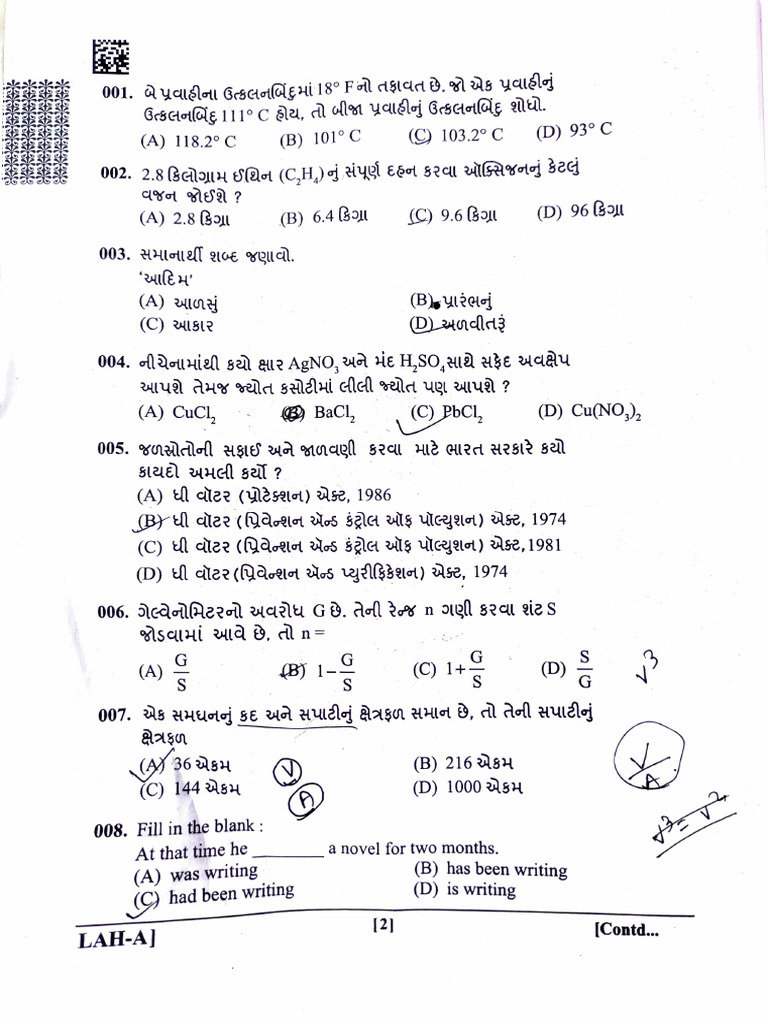 001. બે પ્રવાહીના ઉત્કલનબિંદુમાં 18° F નો તફાવત છે. જો એક પ્રવાહીનું
ઉત્કલનબિંદુ 111° C હોય, તો બીજા પ્રવાહીનું ઉત્કલનબિંદુ શોધો.
(A) 118.2° C (B) 101° C (C) 103.2° C (D) 93° C
002. 2.8 કિલોગ્રામ ઈથિન (C₂H₄) નું સંપૂર્ણ દહન કરવા ઑક્સિજનનું કેટલું
વજન જોઈશે ?
(A) 2.8 કિગ્રા (B) 6.4 કિગ્રા (C) 9.6 કિગ્રા (D) 96 કિગ્રા
003. સમાનાર્થી શબ્દ જણાવો.
‘આદિમ’
(A) આળસું (B) પ્રારંભનું
(C) આકાર (D) અળવીતરું
004. નીચેનામાંથી કયો ક્ષાર AgNO₃ અને મંદ H₂SO₄ સાથે સફેદ અવક્ષેપ
આપશે તેમજ જ્યોત કસોટીમાં લીલી જ્યોત પણ આપશે ?
(A) CuCl₂ (B) BaCl₂ (C) PbCl₂ (D) Cu(NO₃)₂
005. જળસ્રોતોની સફાઈ અને જાળવણી કરવા માટે ભારત સરકારે કયો
કાયદો અમલી કર્યો ?
(A) ધી વૉટર (પ્રોટેક્શન) ઍક્ટ, 1986
(B) ધી વૉટર (પ્રિવેન્શન ઍન્ડ કંટ્રોલ ઑફ પૉલ્યુશન) ઍક્ટ, 1974
(C) ધી વૉટર (પ્રિવેન્શન ઍન્ડ કંટ્રોલ ઑફ પૉલ્યુશન) ઍક્ટ, 1981
(D) ધી વૉટર (પ્રિવેન્શન ઍન્ડ પ્યુરીફિકેશન) ઍક્ટ, 1974
006. ગેલ્વેનોમિટરનો અવરોધ G છે. તેની રેન્જ n ગણી કરવા શંટ S
જોડવામાં આવે છે, તો n =
(A) G/S (B) 1−G/S (C) 1+G/S (D) S/G
007. એક સમઘનનું કદ અને સપાટીનું ક્ષેત્રફળ સમાન છે, તો તેની સપાટીનું
ક્ષેત્રફળ
(A) 36 એકમ (B) 216 એકમ
(C) 144 એકમ (D) 1000 એકમ
V
A
V/A
008. Fill in the blank :
At that time he ________ a novel for two months.
(A) was writing (B) has been writing
(C) had been writing (D) is writing
LAH-A] [2] [Contd...